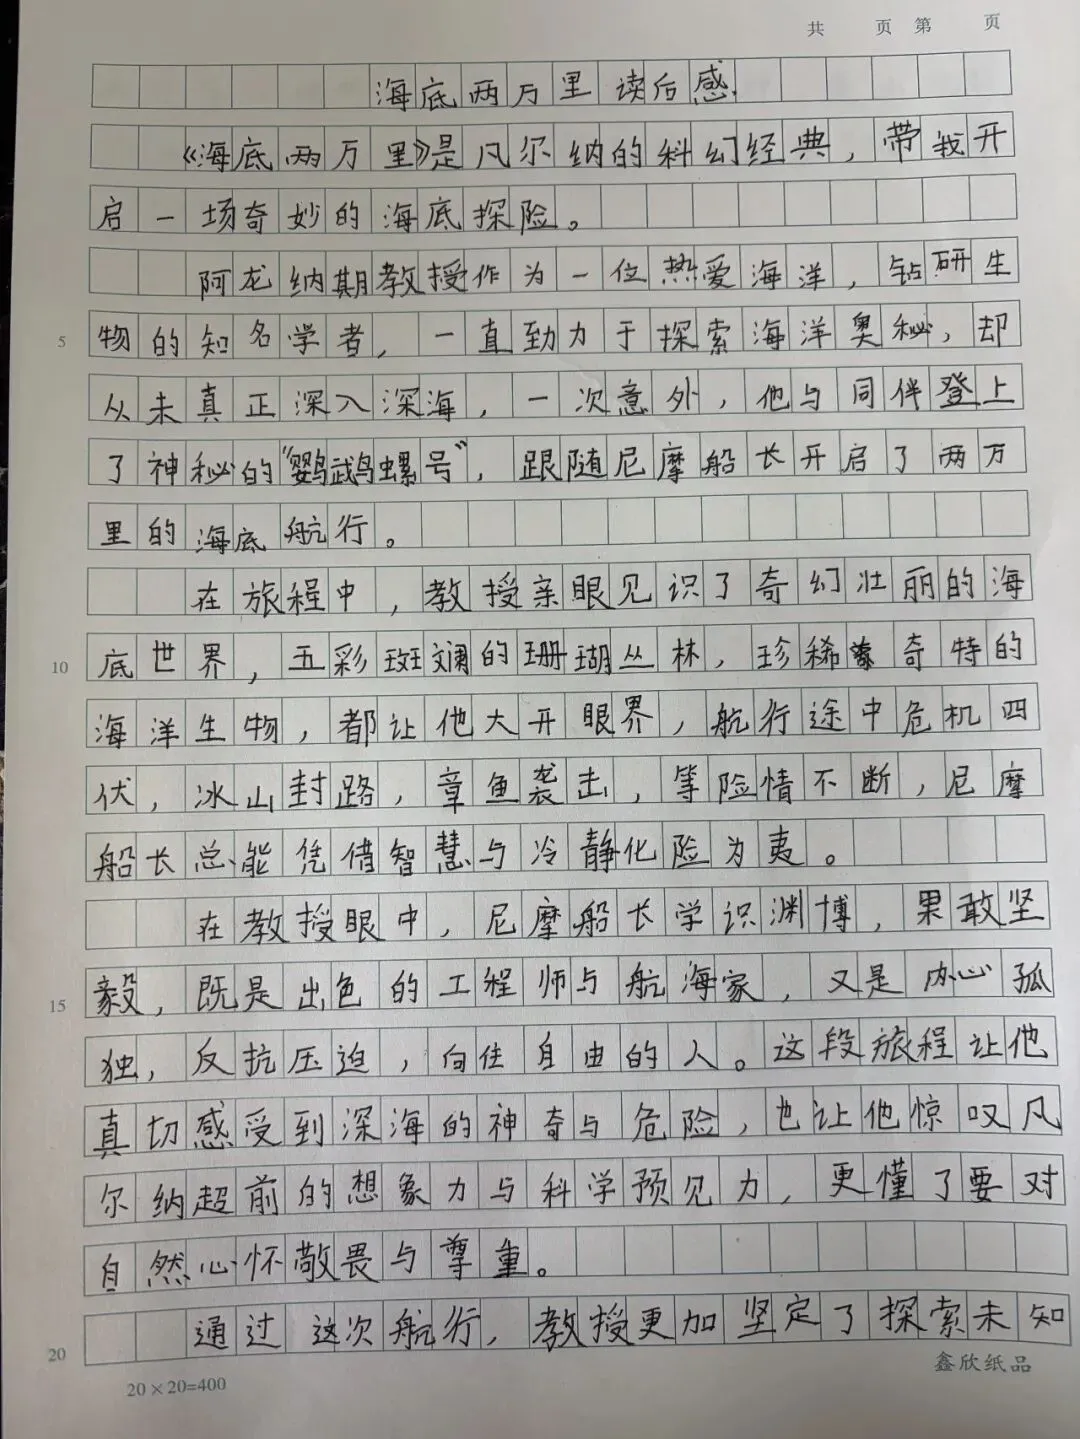 共 页 第 页
海底两万里读后感
《海底两万里》是凡尔纳的科幻经典，带我开
启一场奇妙的海底探险。
阿龙纳期教授作为一位热爱海洋，钻研生
5 物的知名学者，一直致力于探索海洋奥秘，却
从未真正深入深海，一次意外，他与同伴登上
了神秘的“鹦鹉螺号”，跟随尼摩船长开启了两万
里的海底航行。
在旅程中，教授亲眼见识了奇幻壮丽的海
10 底世界，五彩斑斓的珊瑚丛林，珍稀奇特的
海洋生物，都让他大开眼界，航行途中危机四
伏，冰山封路，章鱼袭击，等险情不断，尼摩
船长总能凭借智慧与冷静化险为夷。
在教授眼中，尼摩船长学识渊博，果敢坚
15 毅，既是出色的工程师与航海家，又是内心孤
独，反抗压迫，向往自由的人。这段旅程让他
真切感受到深海的神奇与危险，也让他惊叹凡
尔纳超前的想象力与科学预见力，更懂了要对
自然心怀敬畏与尊重。
20 通过这次航行，教授更加坚定了探索未知
20×20=400
鑫欣纸品